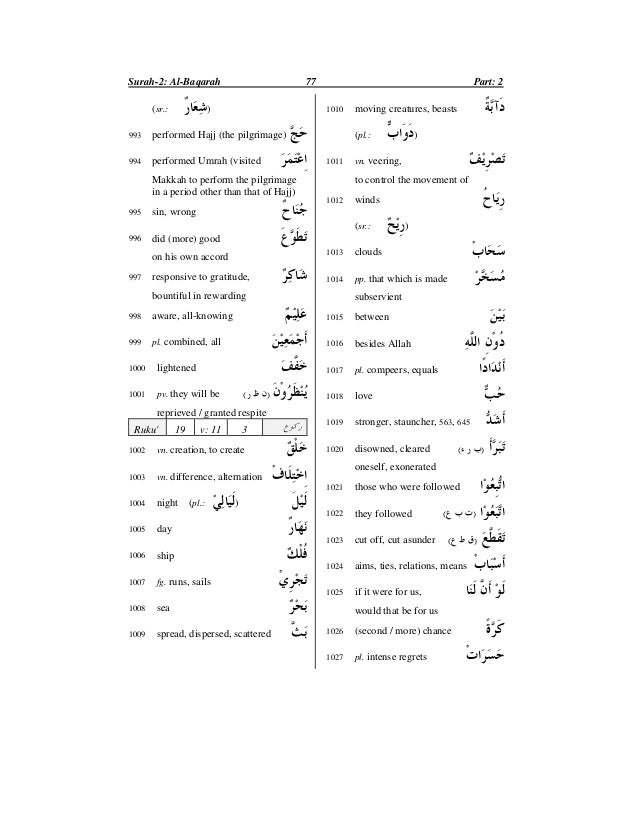 Surah-2: Al-Baqarah 77 Part: 2
(sr.: شِعَارٌ)
993 performed Hajj (the pilgrimage) حَجَّ
994 performed Umrah (visited اِعْتَمَرَ
Makkah to perform the pilgrimage
in a period other than that of Hajj)
995 sin, wrong جُنَاحٌ
996 did (more) good تَطَوَّعَ
on his own accord
997 responsive to gratitude, شَاكِرٌ
bountiful in rewarding
998 aware, all-knowing عَلِيْمٌ
999 pl. combined, all أَجْمَعِيْنَ
1000 lightened خَفَّفَ
1001 pv. they will be (ن ظ ر) يُنْظَرُوْنَ
reprieved / granted respite
Ruku' 19 v: 11 3 ركوع
1002 vn. creation, to create خَلْقٌ
1003 vn. difference, alternation اِخْتِلَافْ
1004 night (pl.: لَيَالِيْ) لَيْلَ
1005 day نَهَارٌ
1006 ship فُلْكٌ
1007 fg. runs, sails تَجْرِيْ
1008 sea بَحْرٌ
1009 spread, dispersed, scattered بَثَّ
1010 moving creatures, beasts دَآبَّةٌ
(pl.: دَوَابٌّ)
1011 vn. veering, تَصْرِيْفٌ
to control the movement of
1012 winds رِيَاحُ
(sr.: رِيْحٌ)
1013 clouds سَحَابْ
1014 pp. that which is made مُسَخَّرْ
subservient
1015 between بَيْنَ
1016 besides Allah دُوْنِ اللَّهِ
1017 pl. compeers, equals أَنْدَادًا
1018 love حُبٌّ
1019 stronger, stauncher, 563, 645 أَشَدُّ
1020 disowned, cleared (ب ر ء) تَبَرَّأَ
oneself, exonerated
1021 those who were followed اتُّبِعُوْا
1022 they followed (ت ب ع) اتَّبَعُوْا
1023 cut off, cut asunder (ق ط ع) تَقَطَّعَ
1024 aims, ties, relations, means أَسْبَابْ
1025 if it were for us, لَوْ أَنَّ لَنَا
would that be for us
1026 (second / more) chance كَرَّةً
1027 pl. intense regrets حَسَرَاتْ